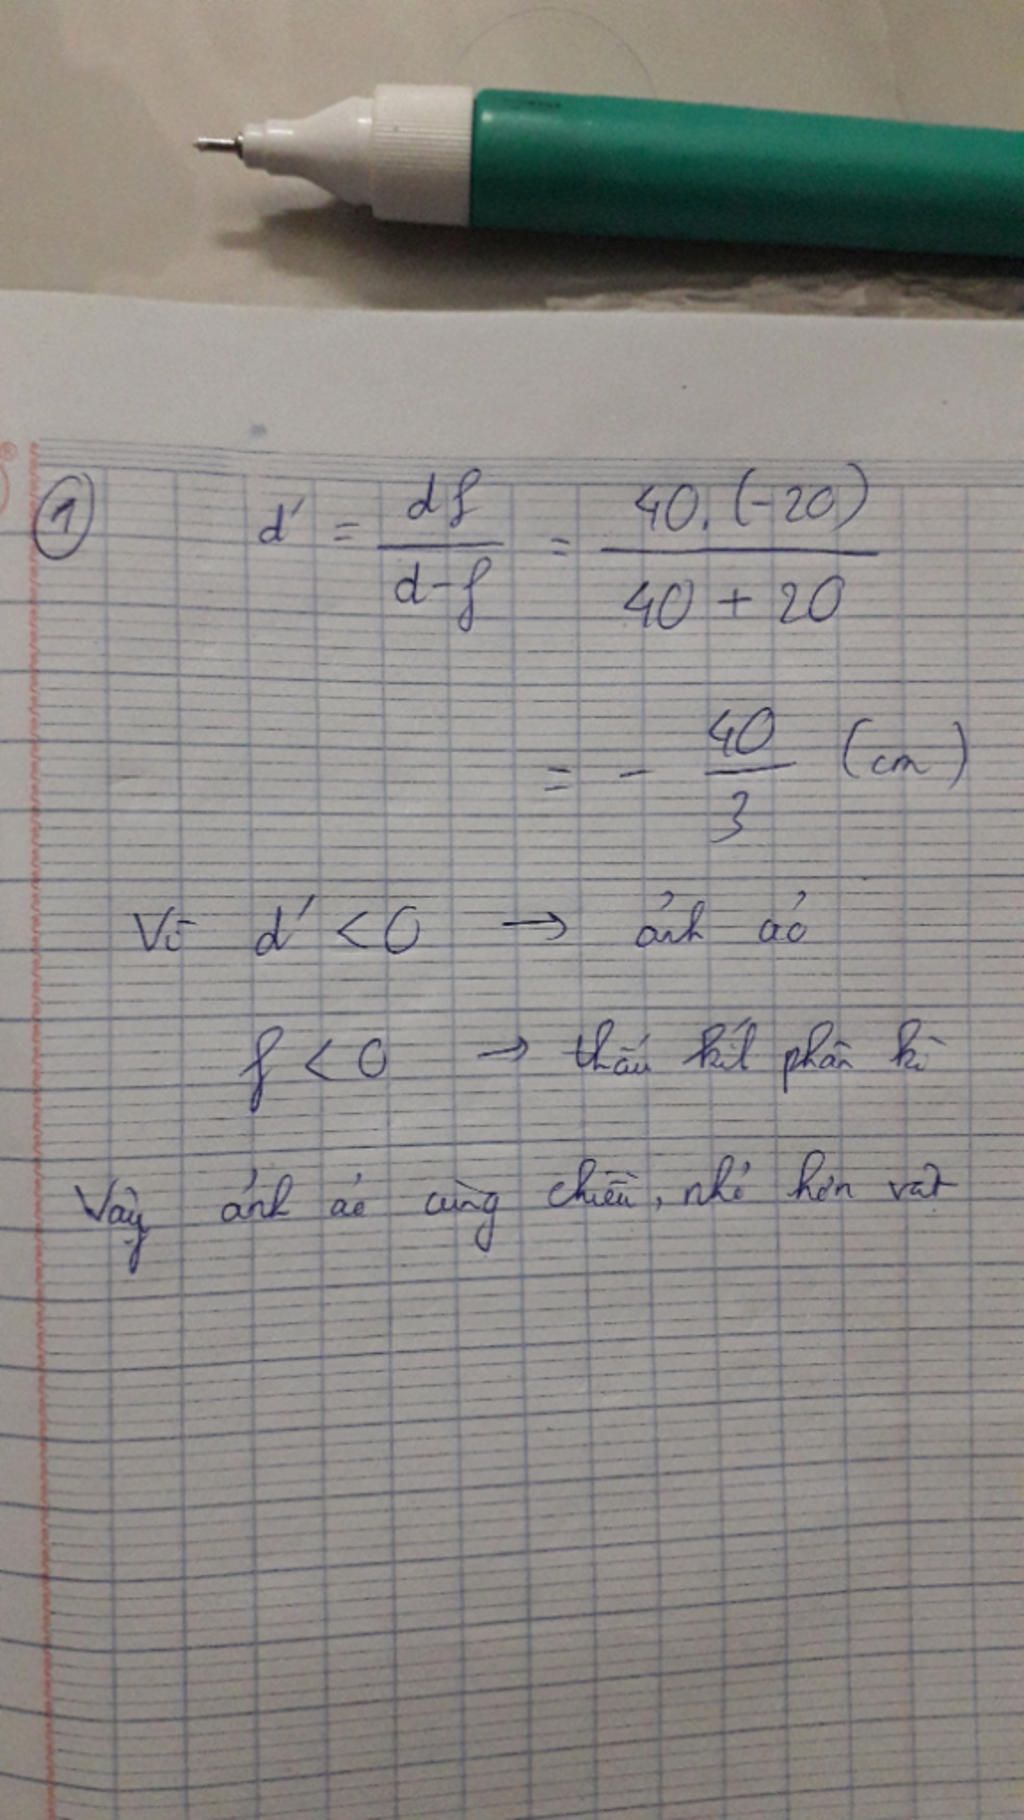 ① d' = df / d-f = 40.(-20) / 40 + 20
= - 40 / 3 (cm)
Vì d' < 0 → ảnh ảo
f < 0 → thấu kính phân kì
Vậy ảnh ảo cùng chiều, nhỏ hơn vật